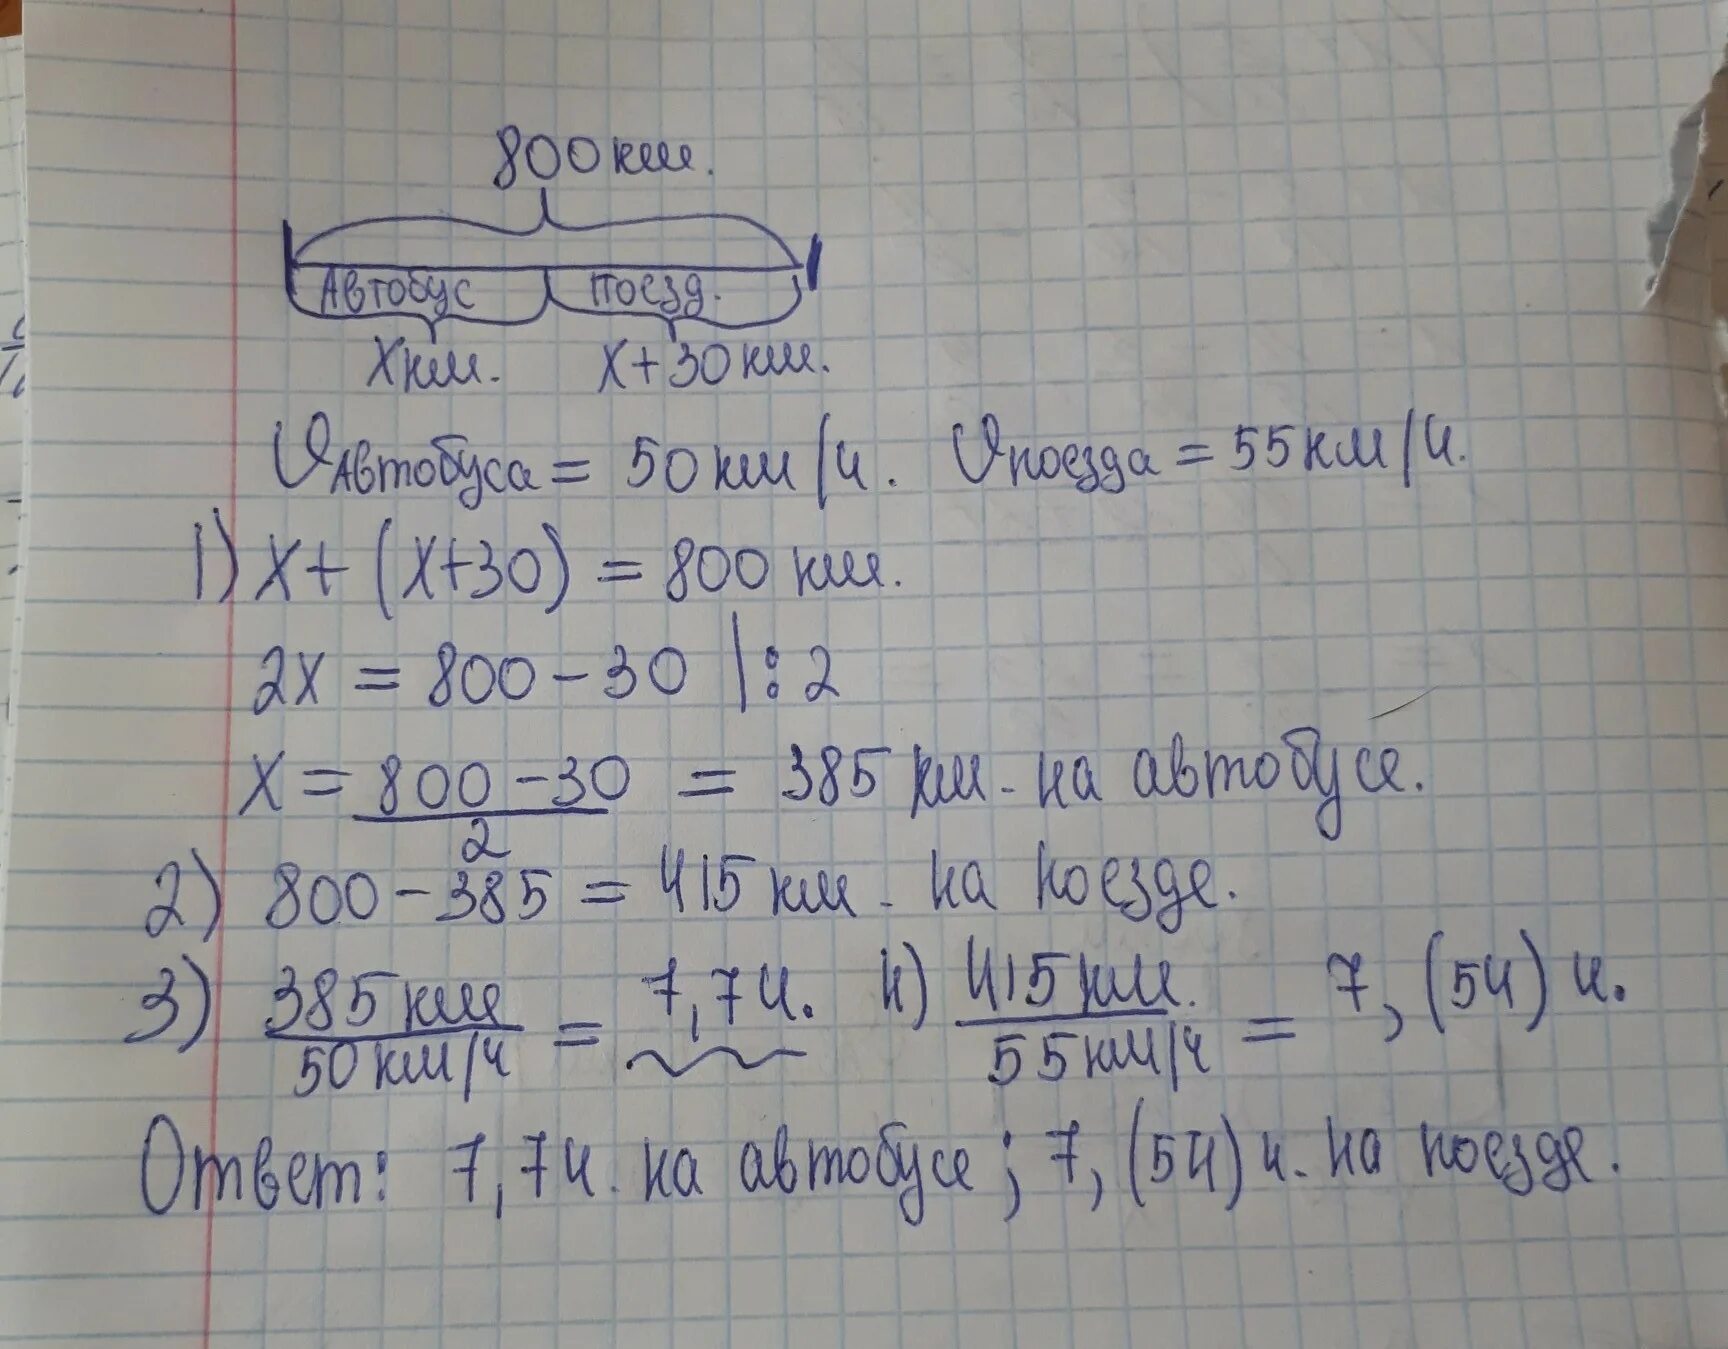 800 км.
Автобус поезд.
X км. X + 30 км.
V Автобуса = 50 км/ч. V поезда = 55 км/ч.
1) X + (X+30) = 800 км.
2X = 800 - 30 | : 2
X = 800 - 30 / 2 = 385 км - на автобусе.
2) 800 - 385 = 415 км - на поезде.
3) 385 км / 50 км/ч = 7,7 ч. 4) 415 км. / 55 км/ч = 7,(54) ч.
Ответ: 7,7 ч. на автобусе; 7,(54) ч. на поезде.